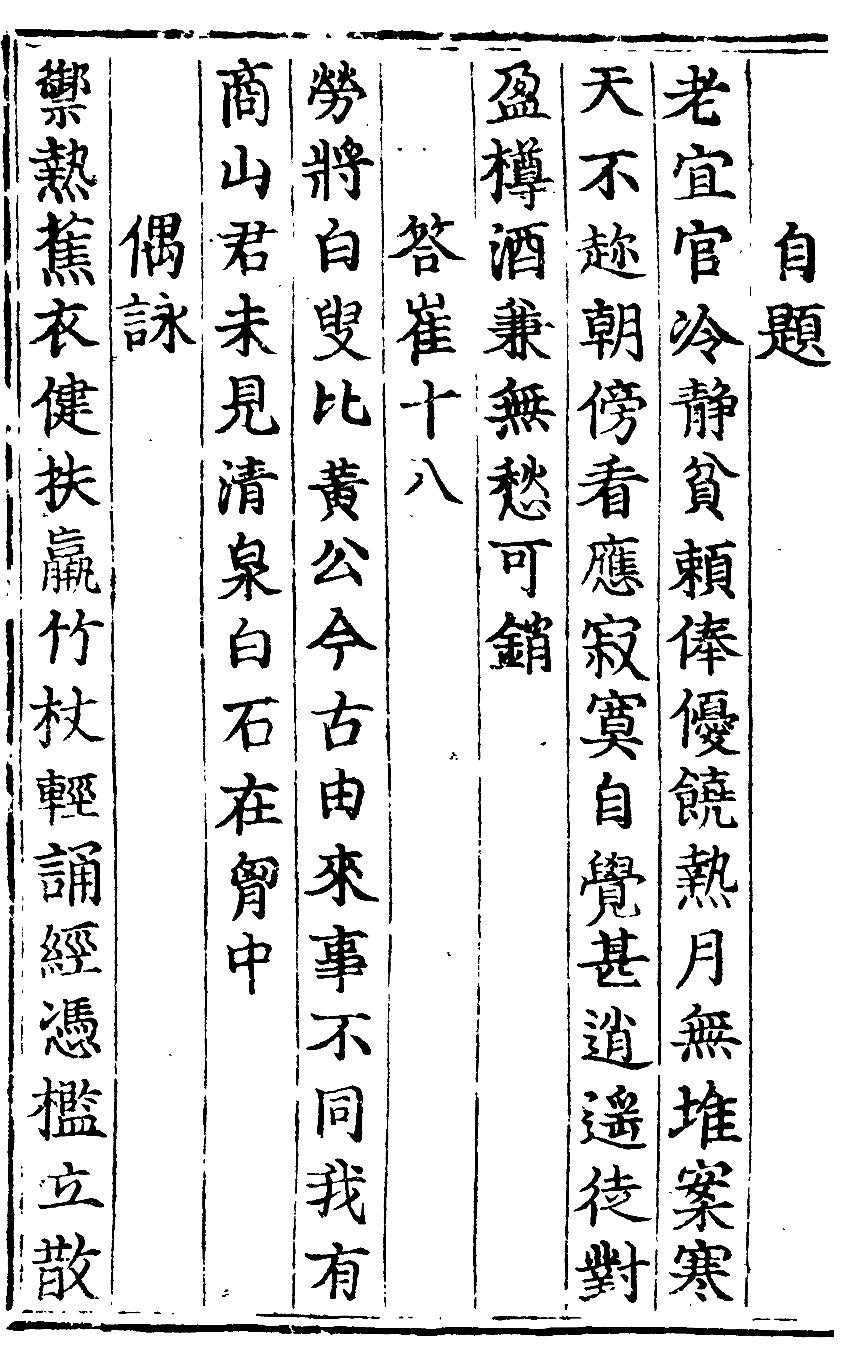 自題
老宜官冷靜貧頼俸優饒熱月無堆案寒
天不趂朝傍看應寂寞自覺甚逍遥徒對
盈樽酒兼無愁可銷
答崔十八
勞將白叟比黃公今古由來事不同我有
商山君未見清泉白石在胷中
偶詠
禦熱蕉衣健扶羸竹杖輕誦經憑檻立散